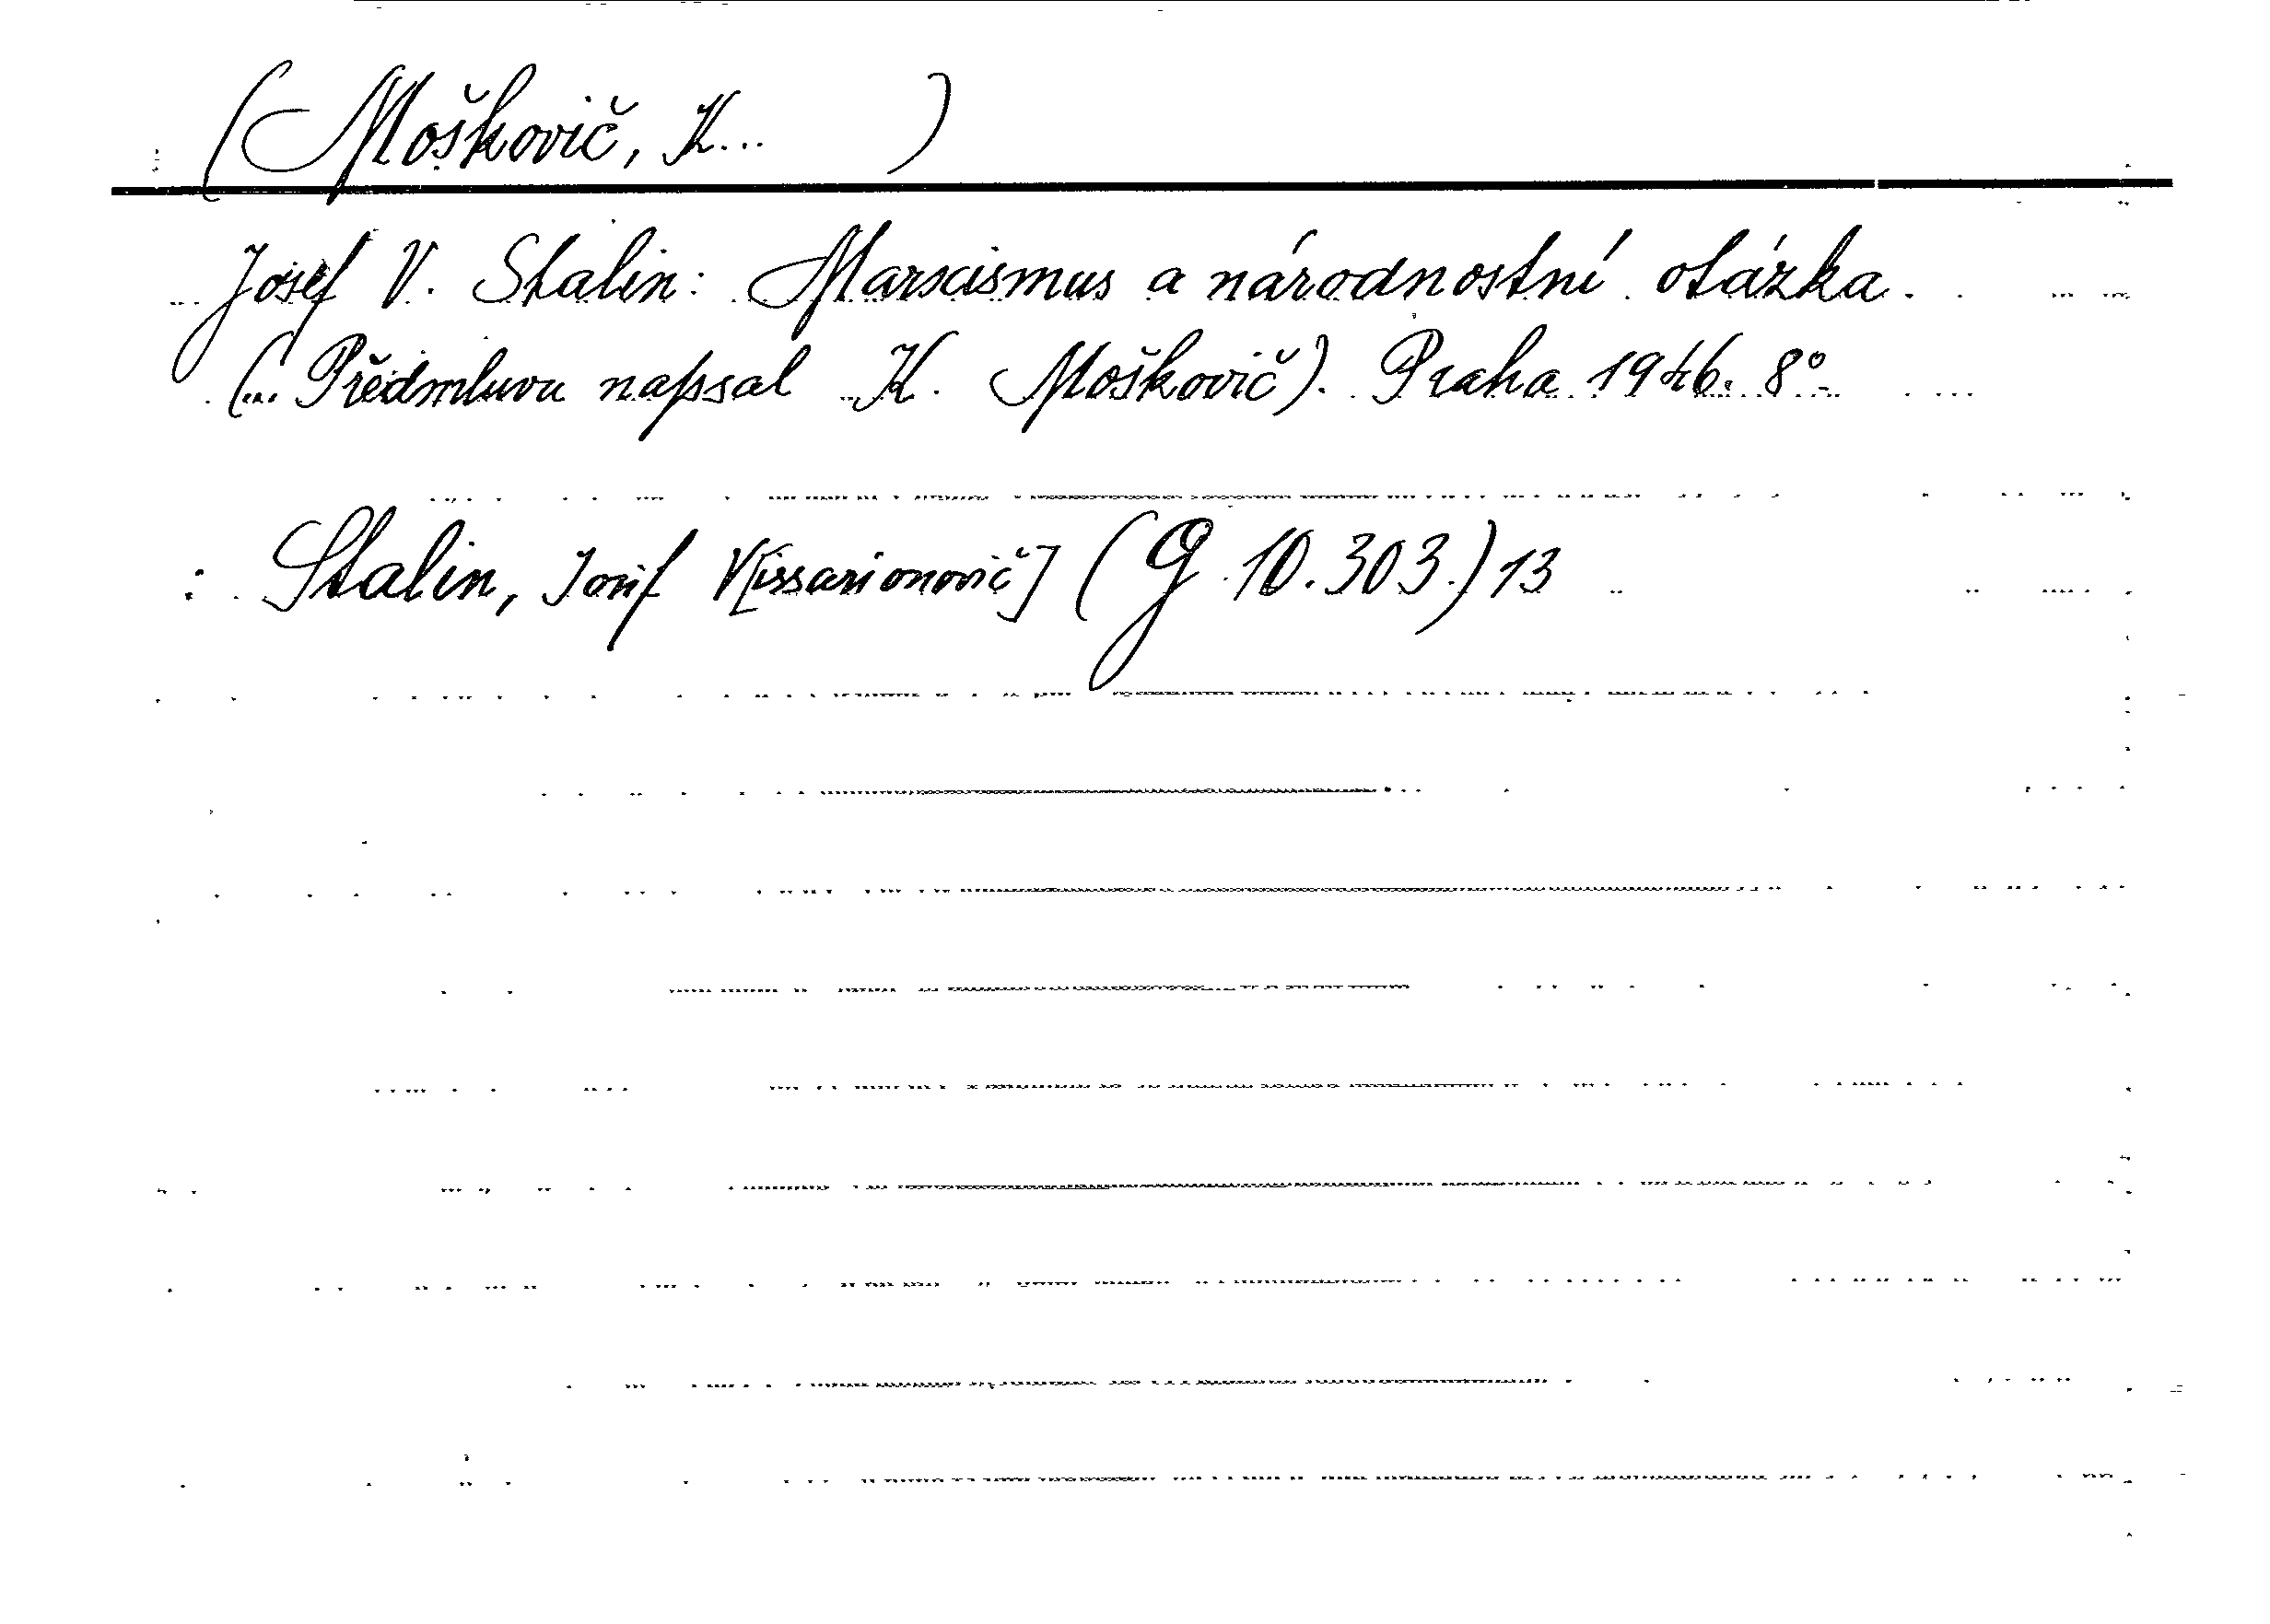 (Moškovič, K... )
Josef V. Stalin: Marxismus a národnostní otázka.
(... Předmluvu napsal K. Moškovič). Praha 1946. 8°.
: Stalin, Josif V[issarionovič] (G 10.303.) 13